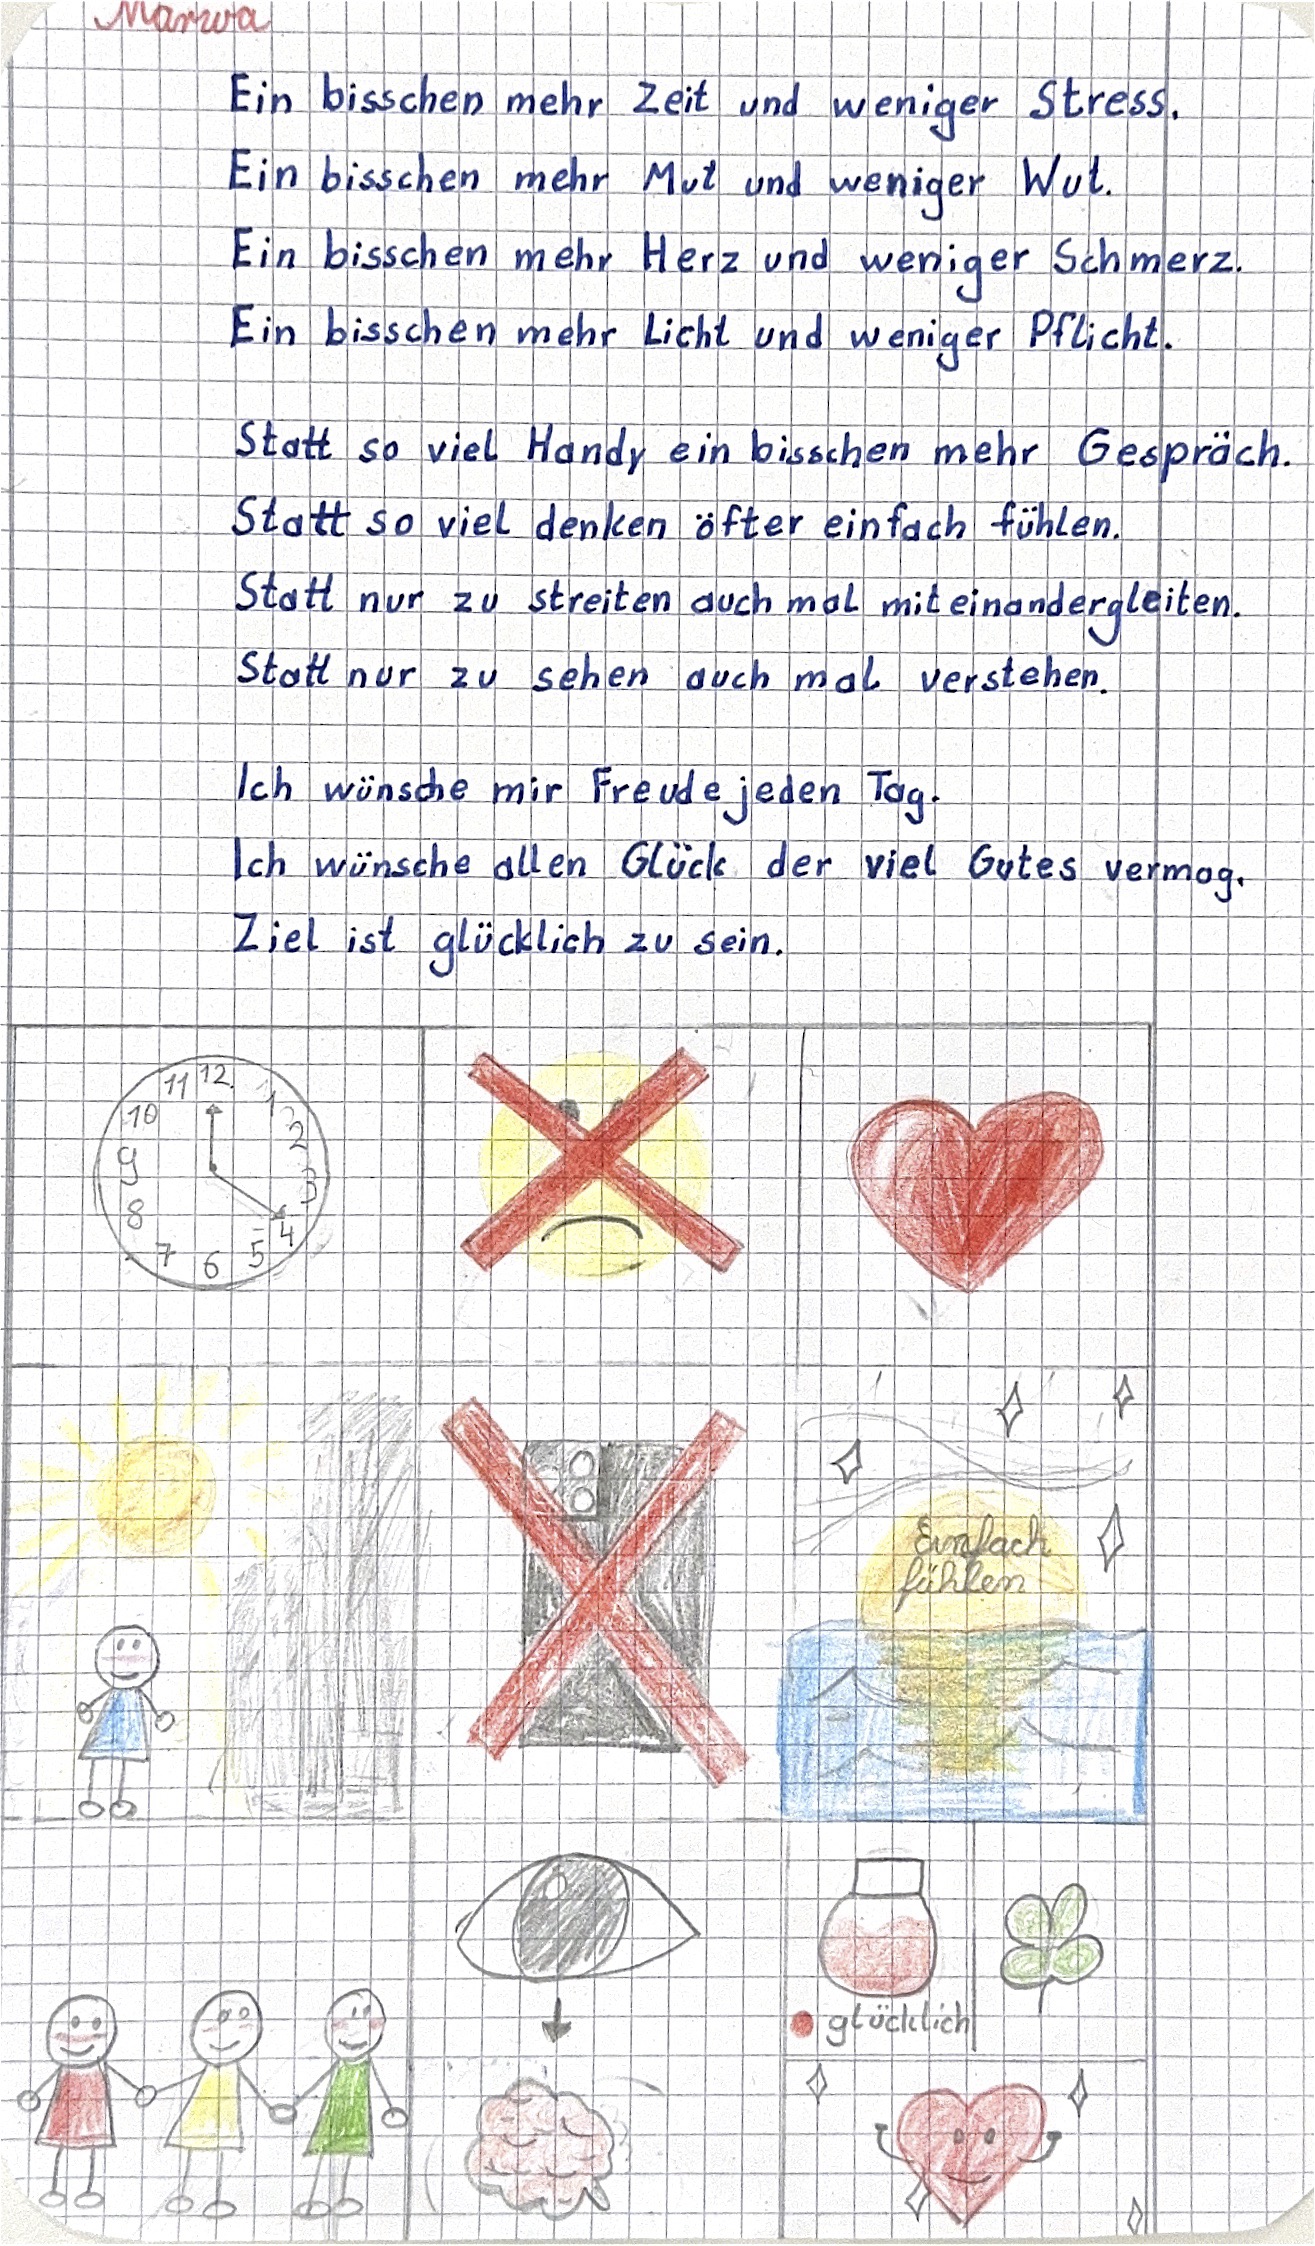 Marwa
Ein bisschen mehr Zeit und weniger Stress.
Ein bisschen mehr Mut und weniger Wut.
Ein bisschen mehr Herz und weniger Schmerz.
Ein bisschen mehr Licht und weniger Pflicht.
Statt so viel Handy ein bisschen mehr Gespräch.
Statt so viel denken öfter einfach fühlen.
Statt nur zu streiten auch mal miteinandergleiten.
Statt nur zu sehen auch mal verstehen.
Ich wünsche mir Freude jeden Tag.
Ich wünsche allen Glück der viel Gutes vermag.
Ziel ist glücklich zu sein.
12
11
1
10
2
9
3
8
4
7
6
5
Einfach
fühlen
glücklich